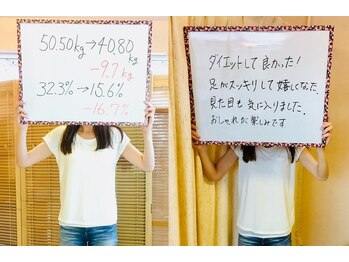 50.50kg→40.80kg
-9.7kg
32.3%→15.6%
-16.7%
ダイエットして良かった!
足がスッキリして嬉しくなた、
見た目も気に入りました。
おしゃれが楽しみです